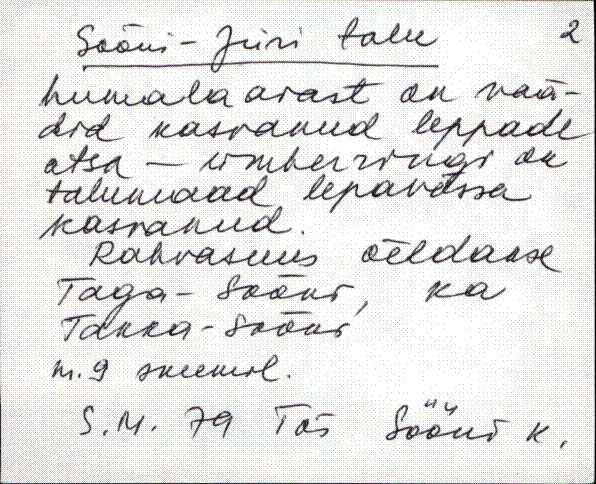 Sööni-Jüri talu 2
humalaaiast on vää-
did kasvanud leppade
otsa – ümberringi on
talumaad lepavõssa
kasvanud.
Rahvasuus öeldakse
Taga-Sööni, ka
Takka-Sööni
m.9 skeemil.
S.M. 79 Tõs Sööni k.